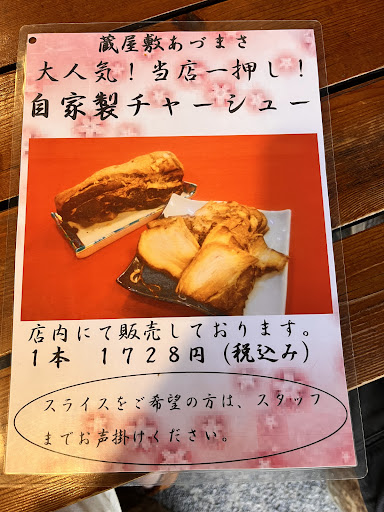 蔵屋敷あづまさ
大人気！当店一押し！
自家製チャーシュー
店内にて販売しております。
１本　１７２８円（税込み）
スライスをご希望の方は、スタッフ
までお声掛けください。